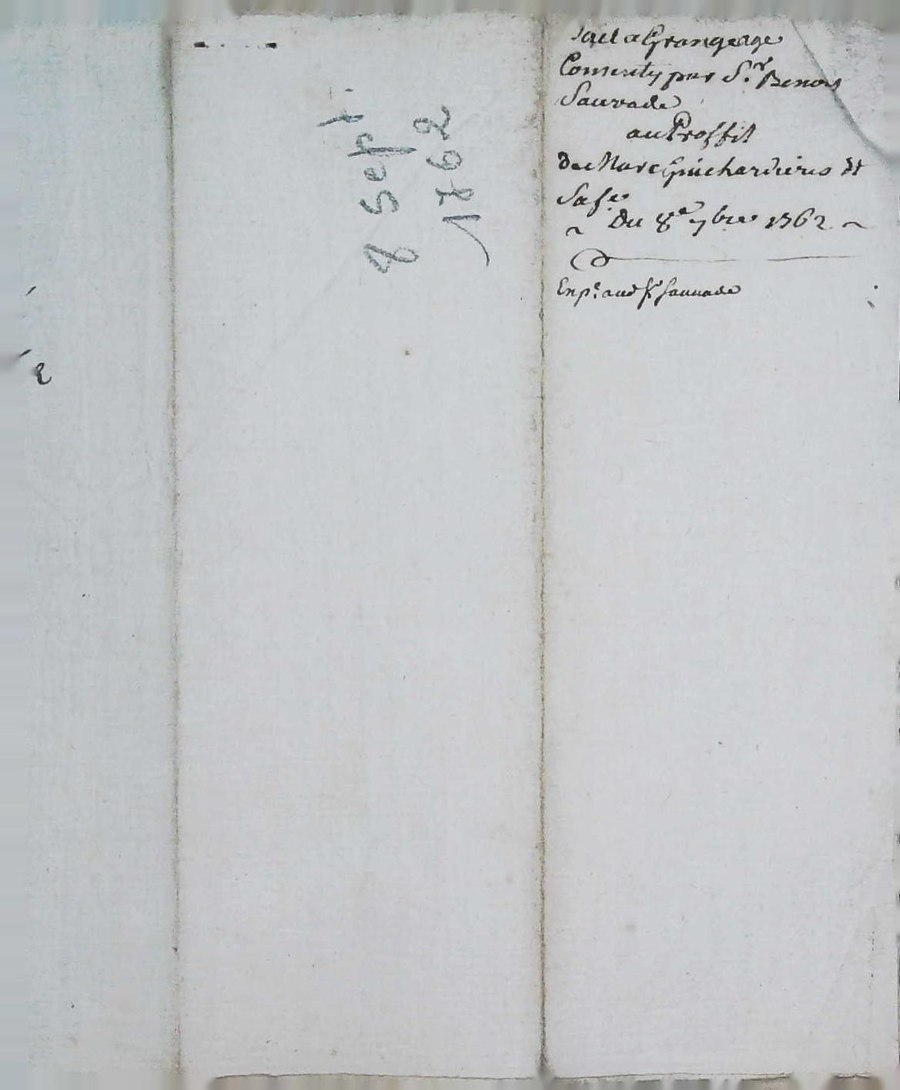 Bail a Grangeage
Consenty par S.r Benoit
Sauvade
au Proffit
de Marc Guichardieres et
Sa fe
Du 8e 7bre 1762
Exp.e aud Sr Sauvade
8 Sept.
1762